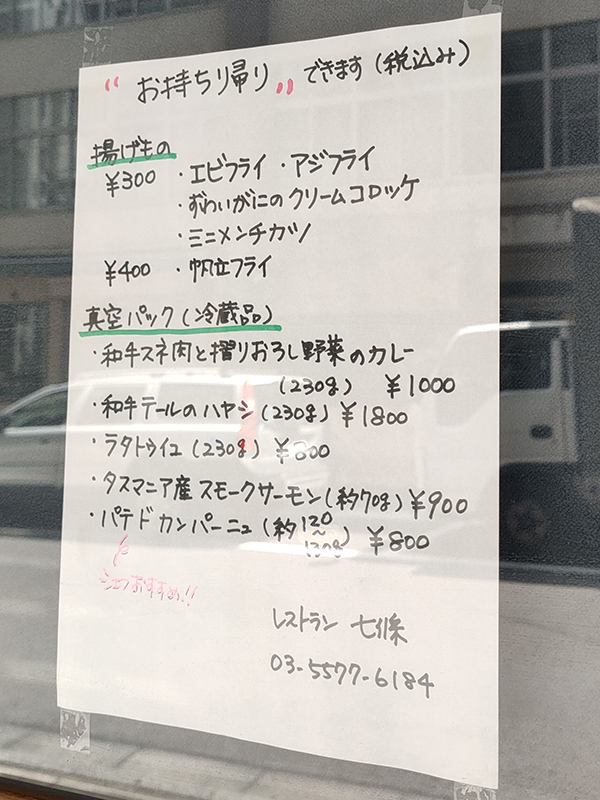 "お持ち帰り" できます (税込み)
揚げもの
¥300 ・エビフライ ・アジフライ
・ずわいがにのクリームコロッケ
・ミニメンチカツ
¥400 ・帆立フライ
真空パック(冷蔵品)
・和牛スネ肉と摺りおろし野菜のカレー
(230g) ¥1000
・和牛テールのハヤシ(230g) ¥1800
・ラタトゥイユ(230g) ¥800
・タスマニア産スモークサーモン(約70g) ¥900
・パテドカンパーニュ(約120~130g) ¥800
シェフおすすめ!!
レストラン 七條
03-5577-6184